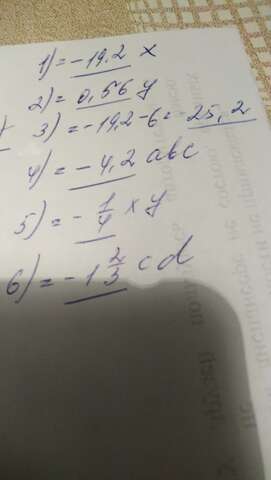 1) = -19,2 x
2) = 0,56 y
3) = -19,2 - 6 = -25,2
4) = -4,2 abc
5) = -1/4 xy
6) = -1 2/3 cd